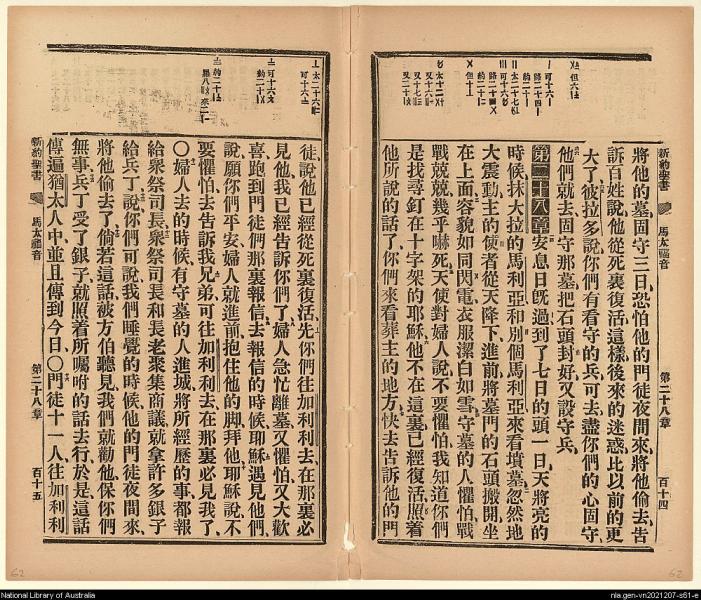 新約聖書
馬太福音
第二十八章
百十四
將他的墓、固守三日、恐怕他的門徒夜間來、將他偷去、告
訴百姓說、他從死裏復活、這樣後來的迷惑、比以前的更
大了、彼拉多說、你們有看守的兵、可去盡你們的心固守、
他們就去固守那墓、把石頭封好、又設守兵、
第二十八章安息日旣過、到了七日的頭一日、天將亮的
時候、抹大拉的馬利亞、和別個馬利亞、來看墳墓、忽然地
大震動、主的使者從天降下、進前將墓門的石頭搬開、坐
在上面、容貌如同閃電、衣服潔白如雪、守墓的人懼怕、戰
戰兢兢、幾乎嚇死、天使對婦人說、不要懼怕、我知道你們
是找尋釘在十字架的耶穌、他不在這裏、已經復活、照着
他所說的話了、你們來看葬主的地方、快去告訴他的門
徒、說他已經從死裏復活、先你們往加利利去、在那裏必
見他、我已經告訴你們了、婦人急忙離墓、又懼怕、又大歡
喜、跑到門徒們那裏報信去、報信的時候、耶穌遇見他們、
說、願你們平安、婦人就進前抱住他的脚拜他、耶穌說、不
要懼怕、去告訴我兄弟、可往加利利去、在那裏必見我了、
〇婦人去的時候、有守墓的人進城、將所經歷的事、都報
給衆祭司長、衆祭司長和長老聚集商議、就拿許多銀子
給兵丁說、你們可說我們睡覺的時候、他的門徒夜間來、
將他偷去了、倘若這話被方伯聽見、我們就勸他、保你們
無事、兵丁受了銀子、就照着所囑咐的話去行、於是這話
傳遍猶太人中、並且傳到今日、〇門徒十一人往加利利
新約聖書
馬太福音
第二十八章
百十五
National Library of Australia
nla.gen-vn2021207-s61-e
62
62